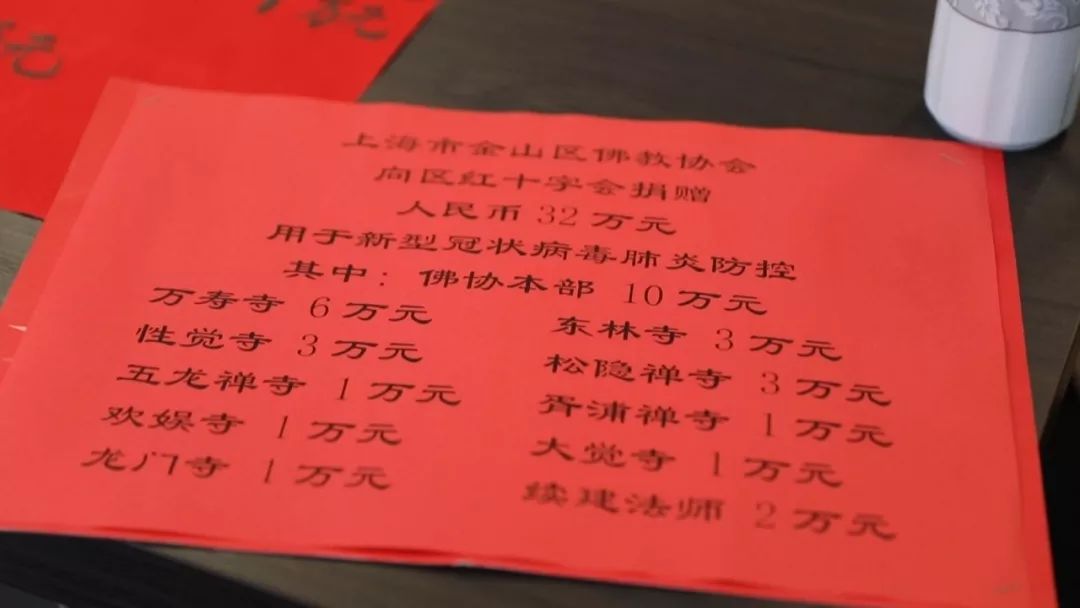 上海市金山区佛教协会
向区红十字会捐赠
人民币 32 万元
用于新型冠状病毒肺炎防控
其中：佛协本部 10 万元
万寿寺 6 万元 东林寺 3 万元
性觉寺 3 万元 松隐禅寺 3 万元
五龙禅寺 1 万元 胥浦禅寺 1 万元
欢娱寺 1 万元 大觉寺 1 万元
龙门寺 1 万元 续建法师 2 万元